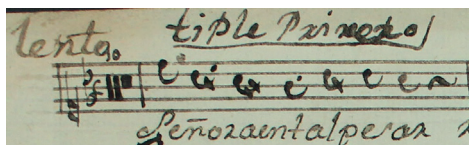 lento
tiple Primero
Señora en tal pesar